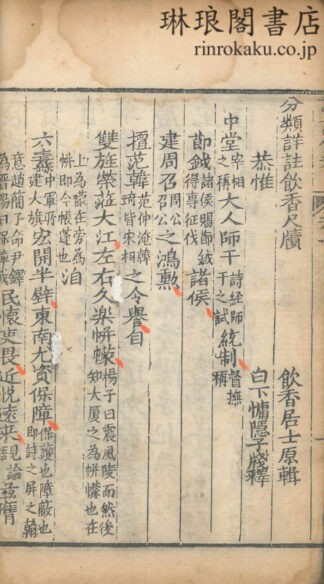 琳琅閣書店
rinrokaku.co.jp
分類詳註飲香尺牘
飲香居士原輯
白下慵隱子牋釋
恭惟
中堂宰相之稱大人師干詩經師干之試統制督撫稱
節鉞諸侯賜節鉞得專征伐諸侯
建周召周公召公之鴻勲
擅范韓范仲淹韓琦皆宋相之令譽自
雙旌榮蒞大江左右久樂帡幪楊子曰震風陵雨然後知大厦之為帡幪也在
上為幪在旁為帡即今帳蓬也洎
六纛中軍所建大旗宏開半壁東南尤資保障保護也障蔽也即詩之屏之翰
意趙簡子命尹鐸為晉陽曰保障哉民懷吏畏近悅遠來說論